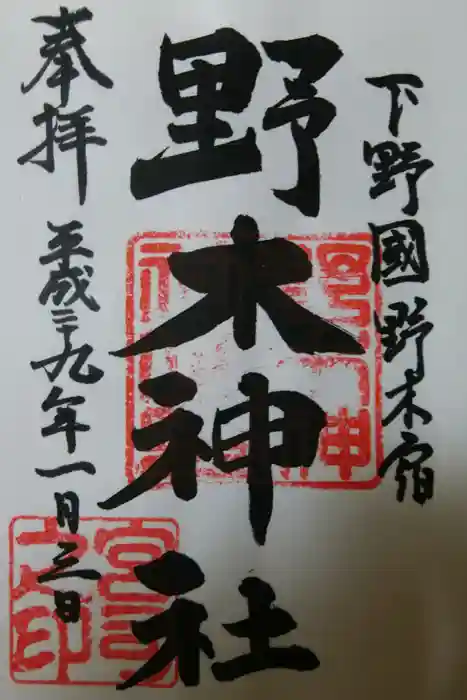 下野國野木宿
野木神社
奉拝
平成二十九年一月三日
宮司之印